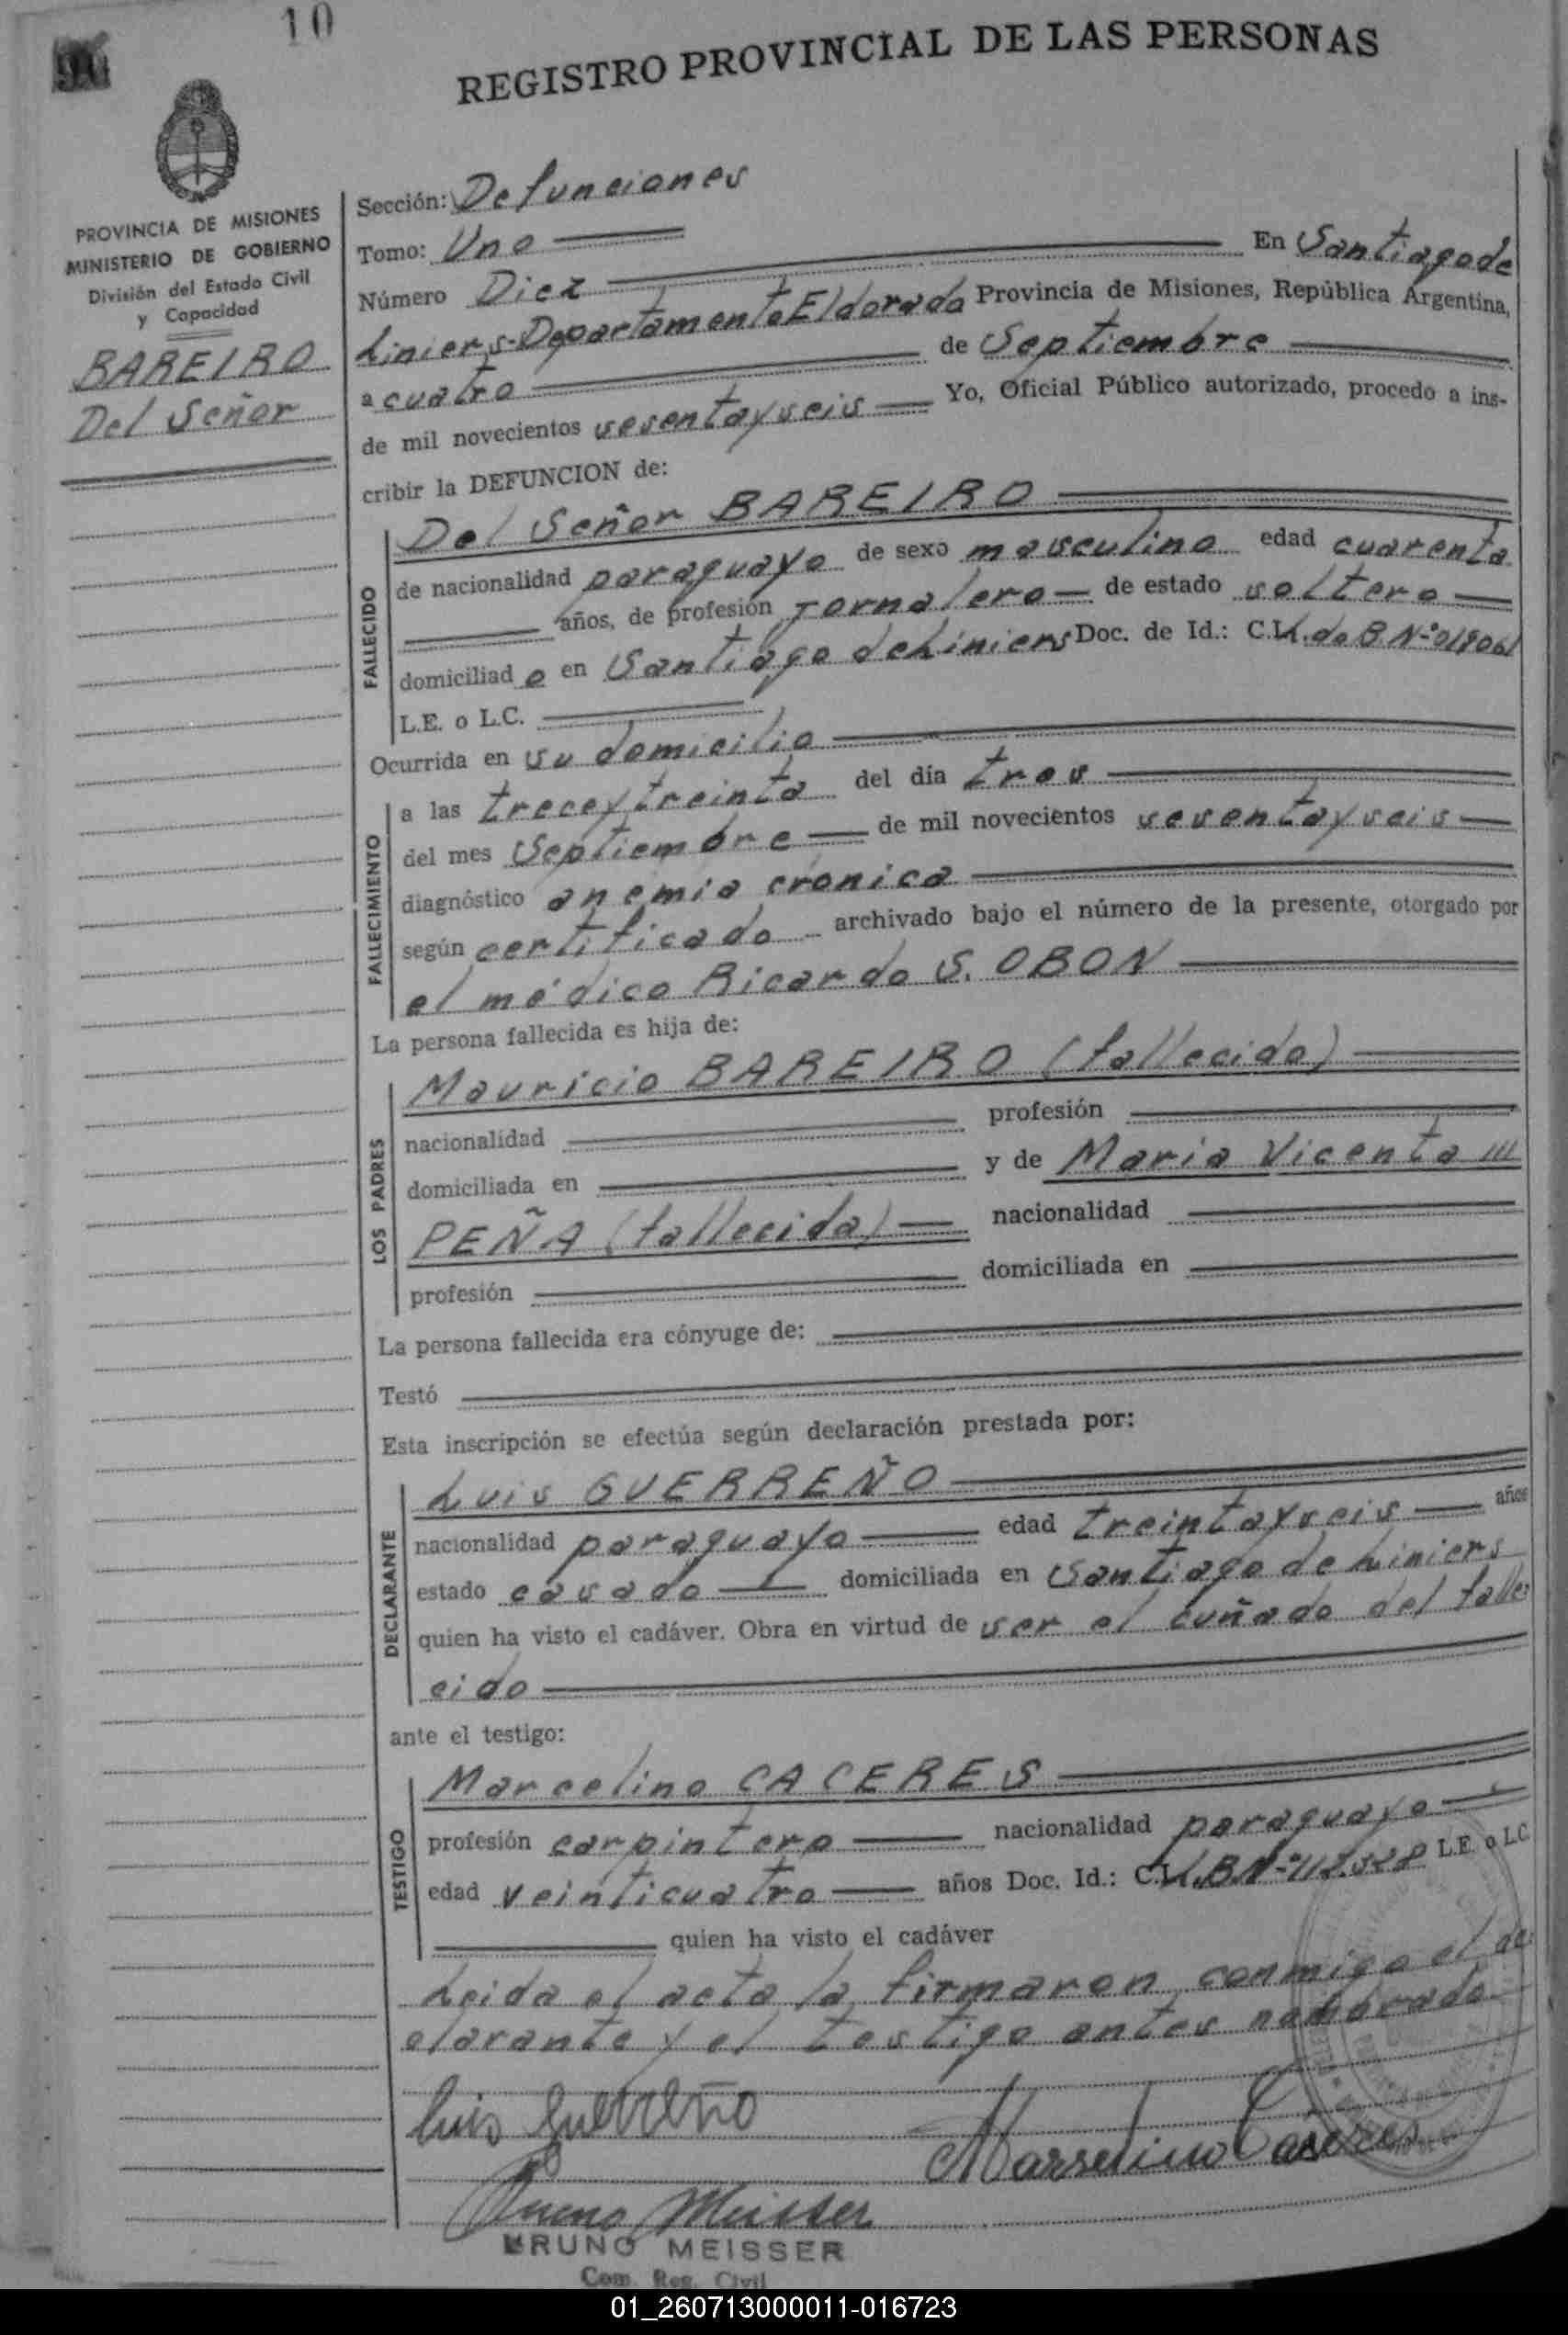 10
REGISTRO PROVINCIAL DE LAS PERSONAS
PROVINCIA DE MISIONES
MINISTERIO DE GOBIERNO
División del Estado Civil
y Capacidad
BAREIRO
Del Señor
Sección: Defunciones
Tomo: Uno
Número Diez En Santiago de
Liniers-Departamento Eldorado Provincia de Misiones, República Argentina,
a cuatro de Septiembre
de mil novecientos sesenta y seis Yo, Oficial Público autorizado, procedo a ins-
cribir la DEFUNCION de:
Del Señor BAREIRO
FALLECIDO
de nacionalidad paraguayo de sexo masculino edad cuarenta
años, de profesión Jornalero de estado soltero
domiciliado en Santiago de Liniers Doc. de Id.: C.I. de B. Nº
L.E. o L.C.
Ocurrida en su domicilio
FALLECIMIENTO
a las trece y treinta del día tres
del mes Septiembre de mil novecientos sesenta y seis
diagnóstico anemia cronica
según certificado archivado bajo el número de la presente, otorgado por
el médico Ricardo S. OBON
La persona fallecida es hija de:
LOS PADRES
Mauricio BAREIRO (fallecido)
nacionalidad profesión
domiciliada en y de Maria Vicenta
PEÑA (fallecida) nacionalidad
profesión domiciliada en
La persona fallecida era cónyuge de:
Testó
Esta inscripción se efectúa según declaración prestada por:
DECLARANTE
Luis GUERREÑO
nacionalidad paraguayo edad treinta y seis años
estado casado domiciliada en Santiago de Liniers
quien ha visto el cadáver. Obra en virtud de ser el cuñado del falle
cido
ante el testigo:
TESTIGO
Marcelino CACERES
profesión carpintero nacionalidad paraguayo
edad veinticuatro años Doc. Id.: C.I. L.E. o L.C.
quien ha visto el cadáver
Leida el acta la firmaron conmigo el de
clarante y el testigo antes nombrado
Luis Guerreño
Marselino Caseres
Bruno Meisser
BRUNO MEISSER
Com. Reg. Civil
01_260713000011-016723